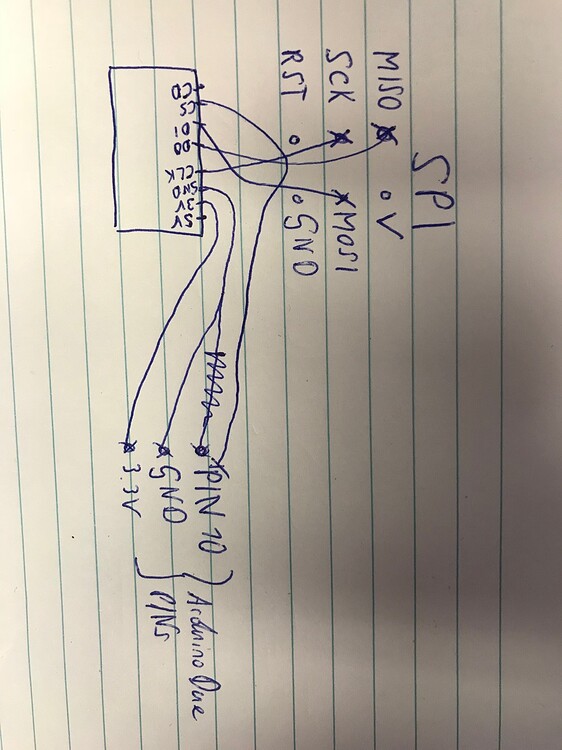 SPI
MISO V
SCK MOSI
RST GND
CD
CS
DI
DO
CLK
GND
3V
5V
PIN 10
GND
3.3V
Arduino Due
PINs